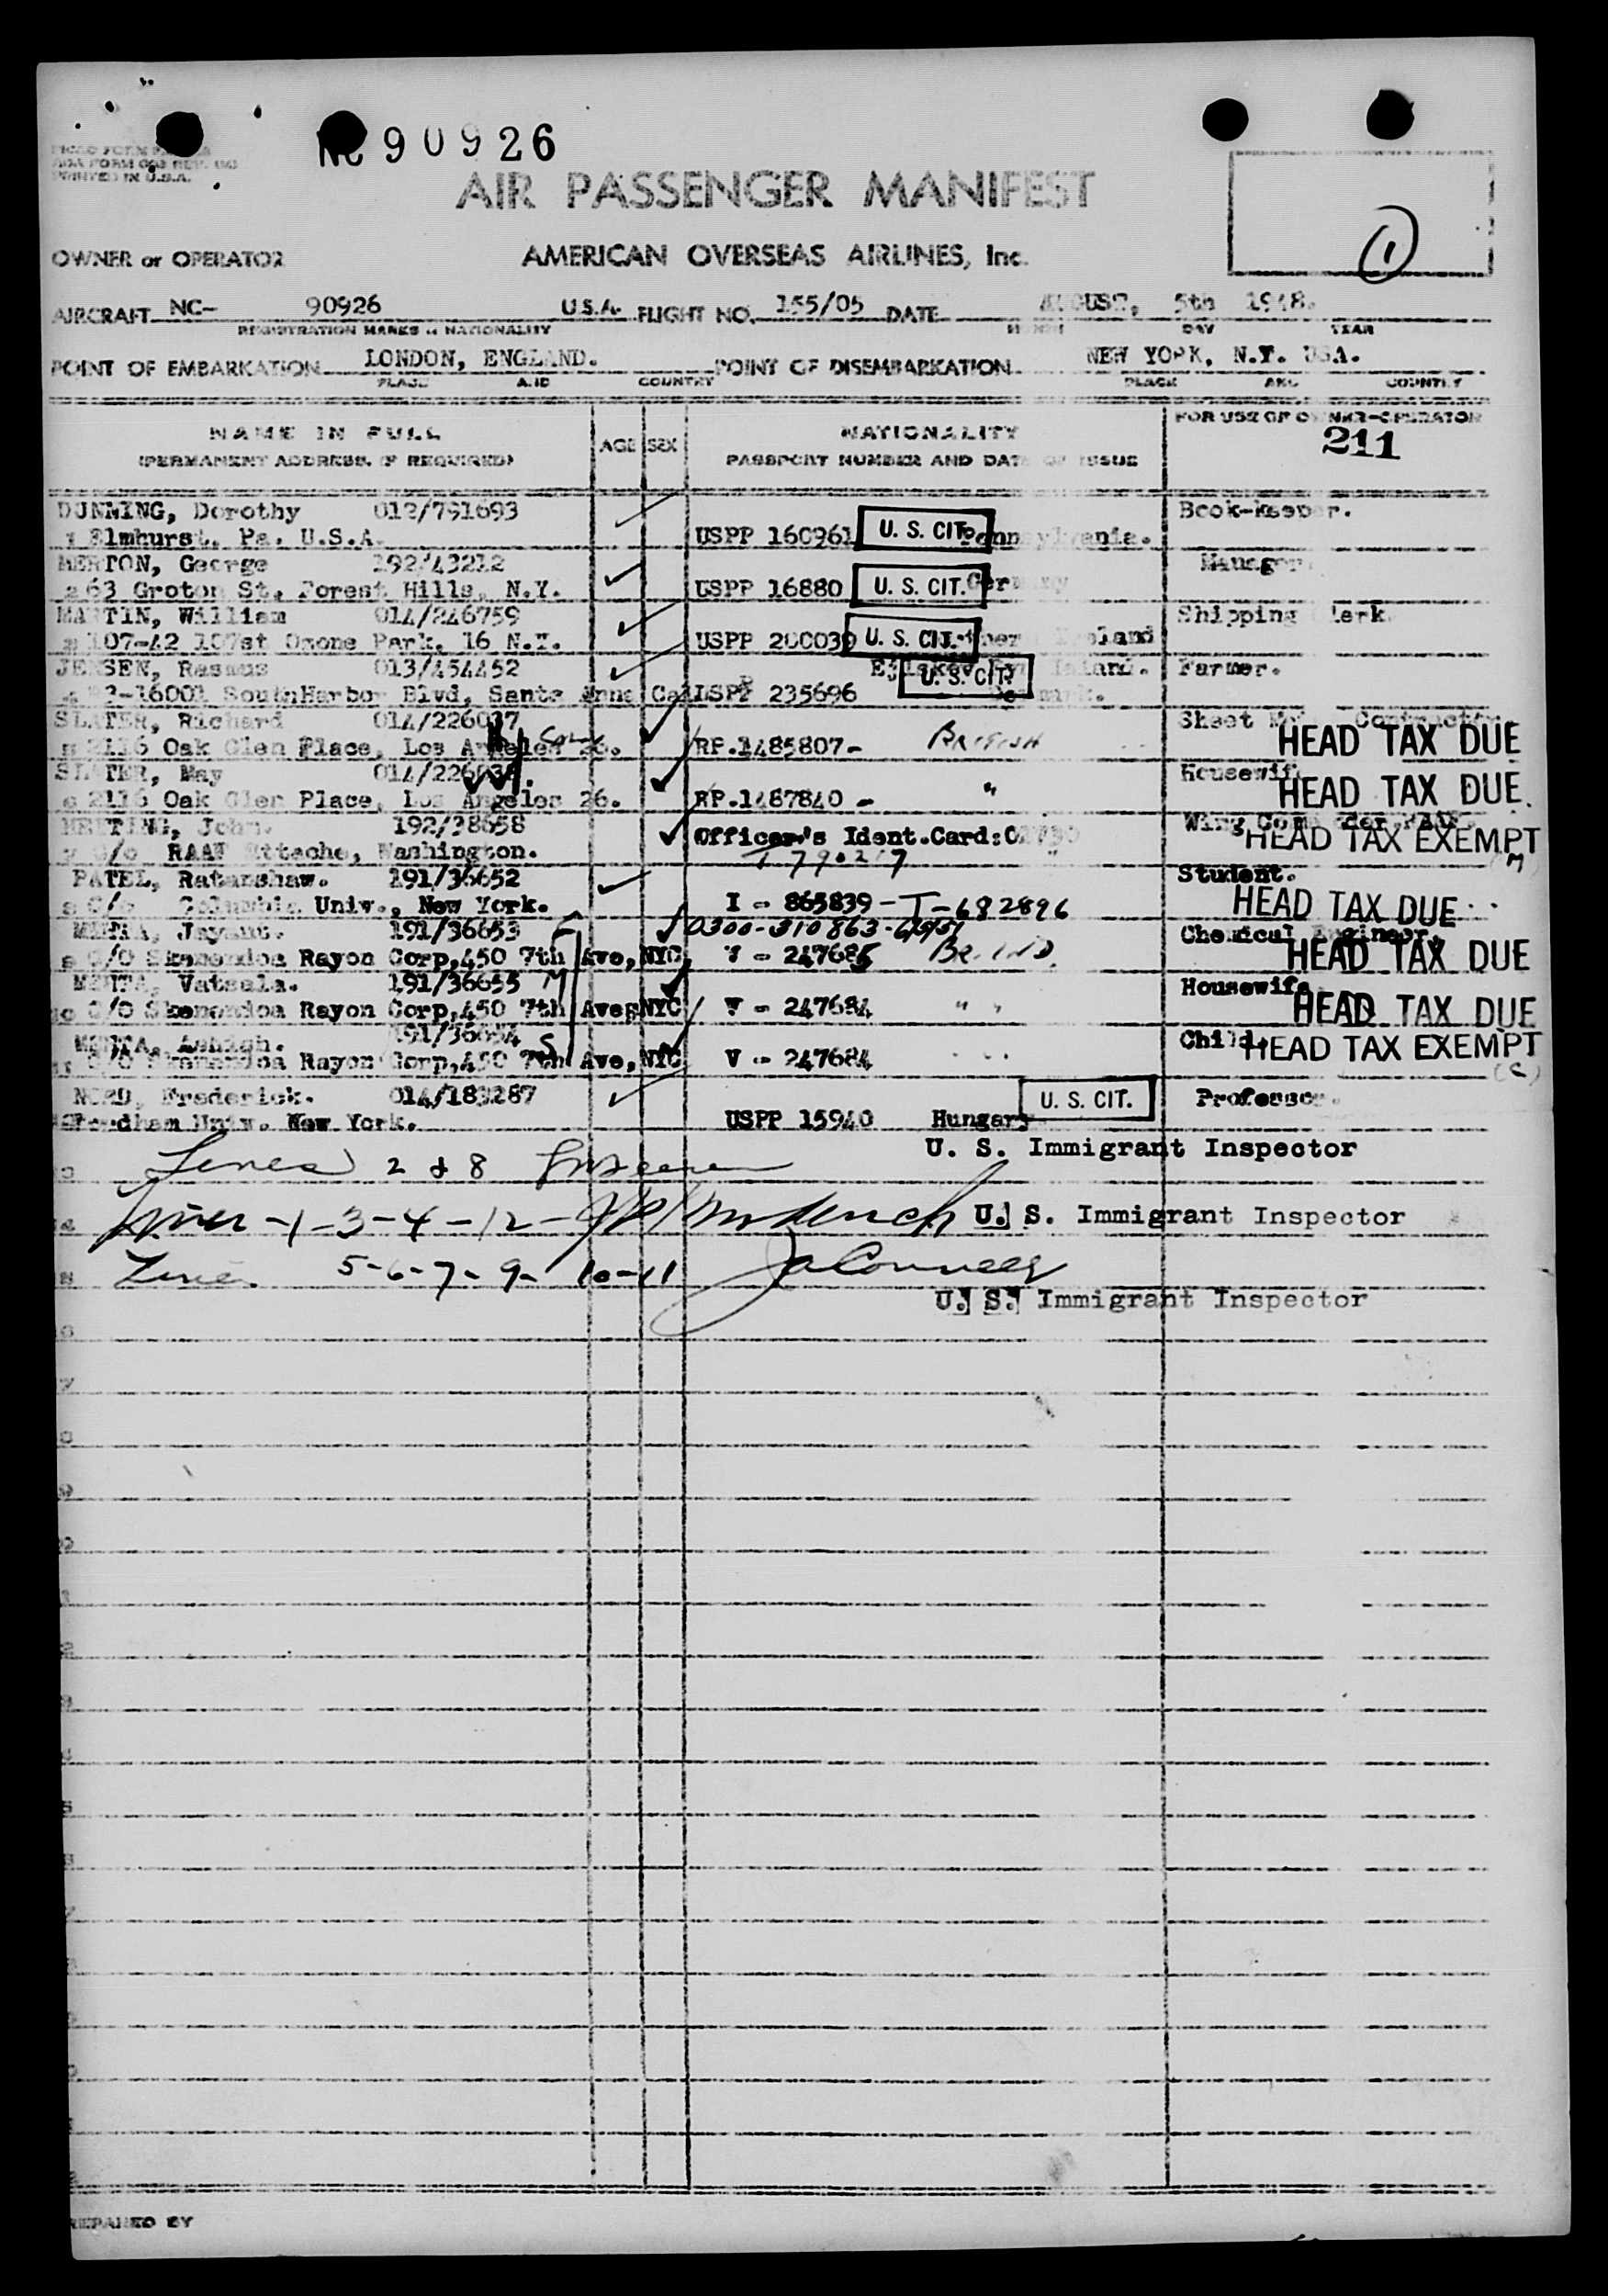 90926
PRINTED IN U.S.A.
AIR PASSENGER MANIFEST
1
OWNER or OPERATOR AMERICAN OVERSEAS AIRLINES, Inc.
AIRCRAFT NC- 90926 U.S.A. FLIGHT NO. 155/05 DATE AUGUST, 5th 1948.
REGISTRATION MARKS NATIONALITY MONTH DAY YEAR
POINT OF EMBARKATION LONDON, ENGLAND. POINT OF DISEMBARKATION NEW YORK, N.Y. USA.
PLACE AND COUNTRY PLACE AND COUNTRY
NAME IN FULL AGE SEX NATIONALITY FOR USE OF OWNER-OPERATOR
(PERMANENT ADDRESS, IF REQUIRED) PASSPORT NUMBER AND DATE OF ISSUE 211
DUNNING, Dorothy 012/791693 Book-keeper.
Elmhurst, Pa. U.S.A. USPP 160961 U. S. CIT. Pennsylvania.
MERTON, George 192/43212 Manager
63 Groton St, Forest Hills, N.Y. USPP 16880 U. S. CIT. Germany
MARTIN, William 014/246759 Shipping Clerk.
107-42 107st Ozone Park, 16 N.Y. USPP 200039 U. S. CIT. England
JENSEN, Rasmus 013/454452 Farmer.
16001 South Harbor Blvd, Santa Anna Cal USPP 235696 U. S. CIT.
SLATER, Richard 014/226037 Sheet Contractor
2116 Oak Glen Place, Los Angeles 26. RP.1485807- BRITISH HEAD TAX DUE
SLATER, May Housewife
2116 Oak Glen Place, Los Angeles 26. RP.1487840 - " HEAD TAX DUE.
John. 192/38658 Wing Commander
c/o RAAF Attache, Washington. Officer's Ident.Card: HEAD TAX EXEMPT
(M)
PATEL, Ratanshaw. 191/36652 Student.
C/o Columbia Univ., New York. I - 865839 - I-682896 HEAD TAX DUE
MEHTA, Jayant. 191/36653 0300-310863- Chemical Engineer.
C/O Skenandoa Rayon Corp,450 7th Ave,NYC, 247685 HEAD TAX DUE
MEHTA, Vatsala. 191/36655 M Housewife
C/O Skenandoa Rayon Corp,450 7th Ave,NYC V - 247684 " " HEAD TAX DUE
MEHTA, Ashish. 191/36654 S Child.
C/O Skenandoa Rayon Corp,450 7th Ave,NYC V - 247684 HEAD TAX EXEMPT
(C)
NORD, Frederick. 014/183287 U. S. CIT. Professor.
Fordham Univ. New York. USPP 15940 Hungary
U. S. Immigrant Inspector
Lines 2 & 8
Lines -1-3-4-12- U. S. Immigrant Inspector
Lines 5-6-7-9-10-11
U. S. Immigrant Inspector
PREPARED BY